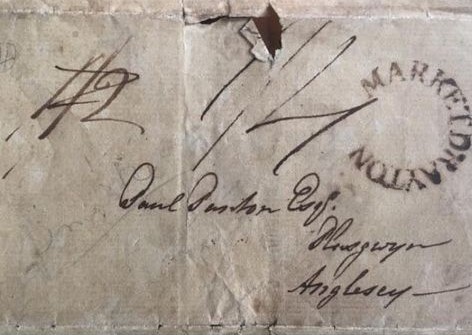 MARKET DRAYTON
Paul Panton Esqr.
Plasgwyn
Anglesey